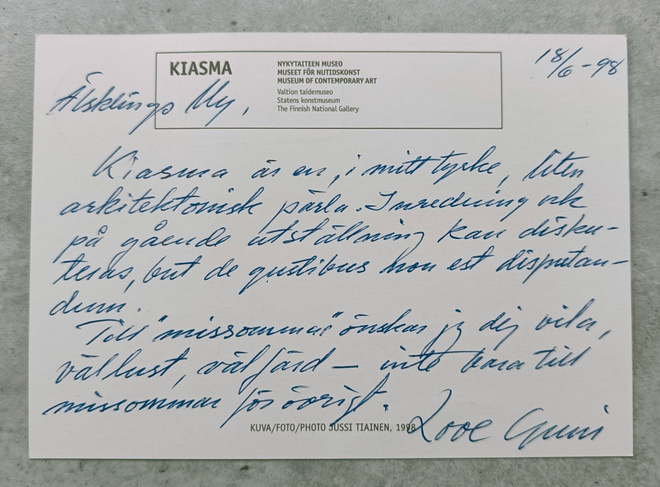 KIASMA
NYKYTAITEEN MUSEO
MUSEET FÖR NUTIDSKONST
MUSEUM OF CONTEMPORARY ART
Valtion taidemuseo
Statens konstmuseum
The Finnish National Gallery
18/6-98
Älsklings My,
Kiasma är en, i mitt tycke, liten
arkitektonisk pärla. Inredning och
på gående utställning kan disku-
teras, but de gustibus non est disputan-
dum.
Till "missommar" önskar jg dig vila,
vällust, välfärd – inte bara till
missommar för övrigt.
Love Guni
KUVA/FOTO/PHOTO JUSSI TIAINEN, 1998